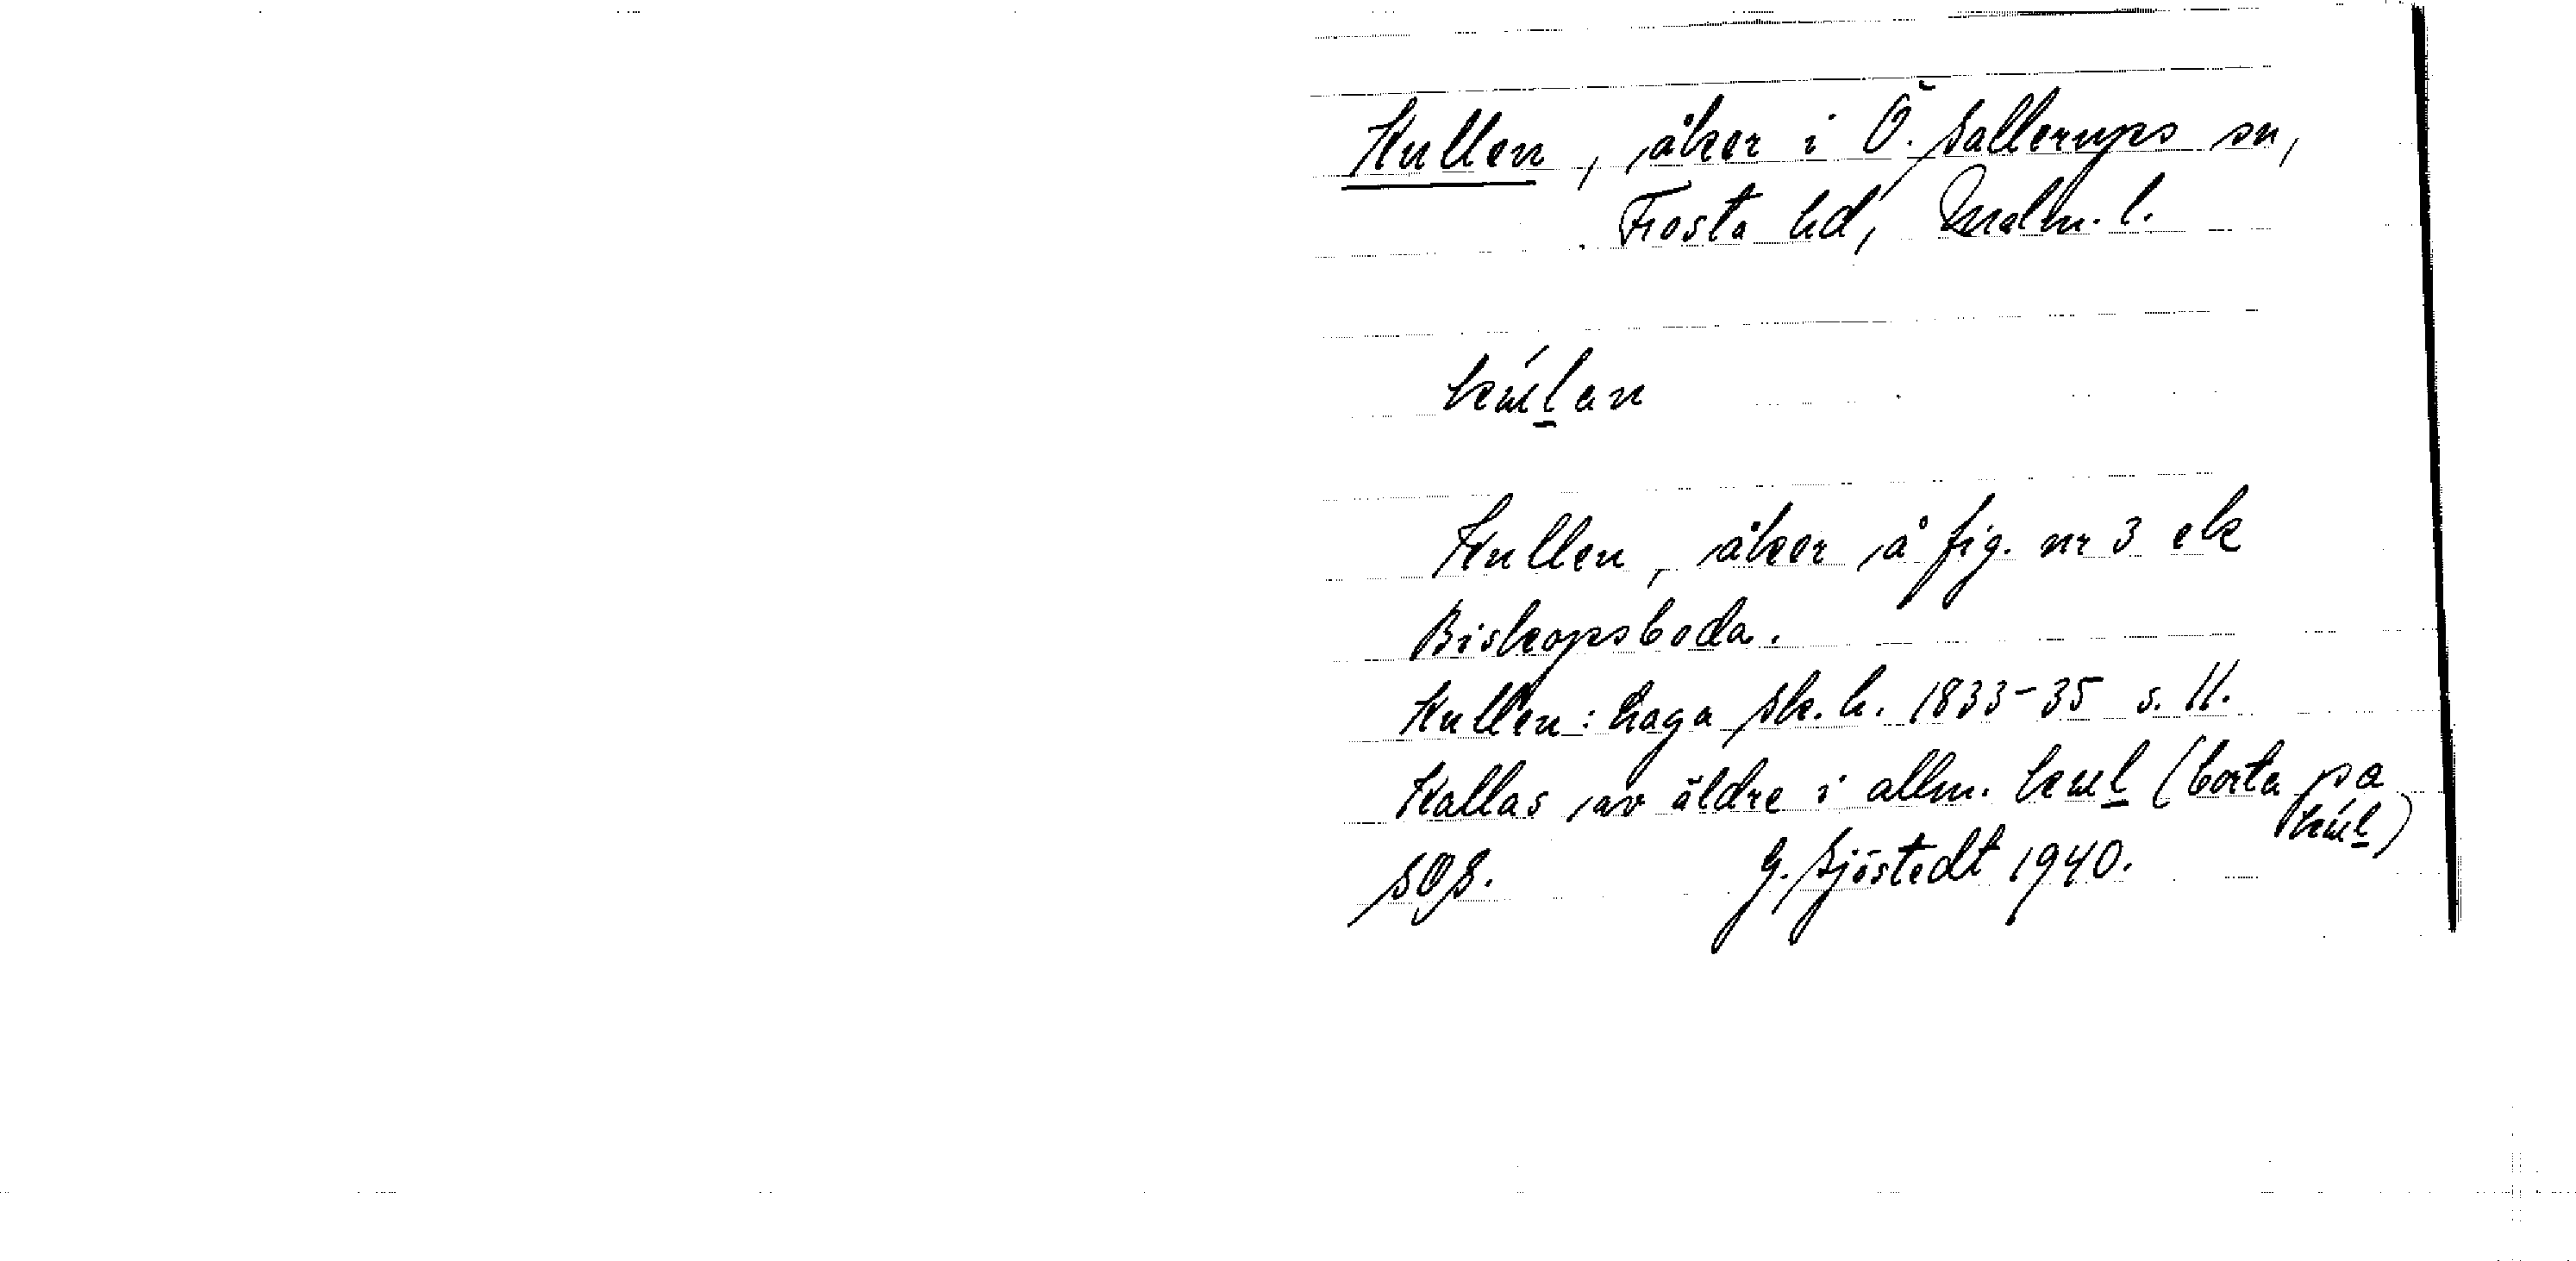 Kullen, åker i Ö. Sallerups sn,
Frosta hd, Malm. l.
kúl̲an
Kullen, åker å fig. nr 3 ek
Biskopsboda.
Kullen: haga Sk. h. 1833-35 s. 11.
Kallas av äldre i allm. kul̲ (borta pa
kúl̲)
SOS. G. Sjöstedt 1940.